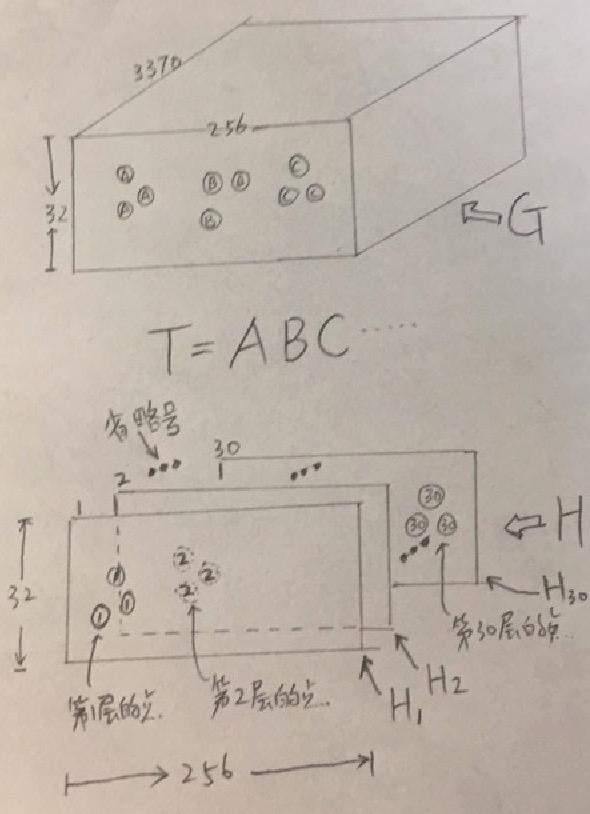 3370
256
32
A
A
A
B B
B
C
C C
G
T=ABC……
省略号
1 2 ... 30 ...
32
1
1
1
2
2
2
30
30 30
...
H
H30
第1层的点.
第2层的点.
第30层的点..
H1
H2
256